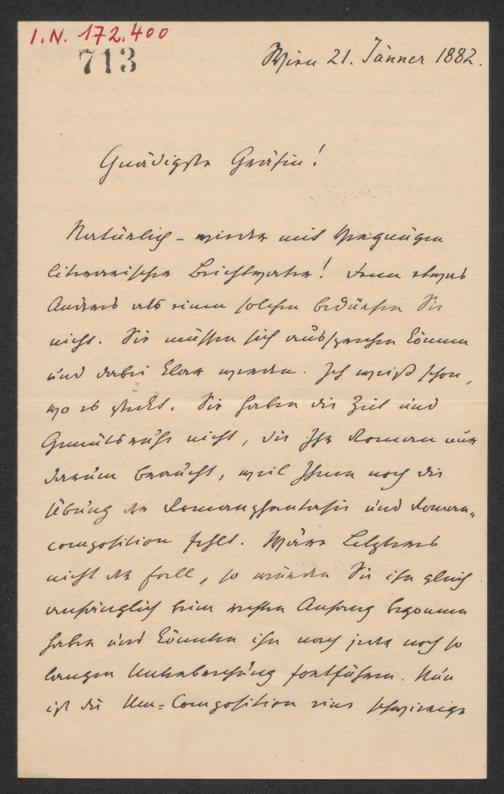 I.N. 172.400
713
Wien 21. Jänner 1882.
Gnädigste Gräfin!
Natürlich – wieder mit Vergnügen
literarischer Beichtvater! Denn etwas
Anderes als einen solchen bedürfen Sie
nicht. Sie müssen sich aussprechen können
und dabei klar werden. Ich weiß schon,
wo es steckt. Sie haben die Zeit und
Gemütsruhe nicht, die Ihr Roman nur
darum braucht, weil Ihnen noch die
Übung der Romanphantasie und Roman-
composition fehlt. Wäre Letzteres
nicht der Fall, so würden Sie ihn gleich
anfänglich beim rechten Anfang begonnen
haben und könnten ihn nach jeder noch so
langen Unterbrechung fortführen. Nun
ist die Um-Composition eine schwierige